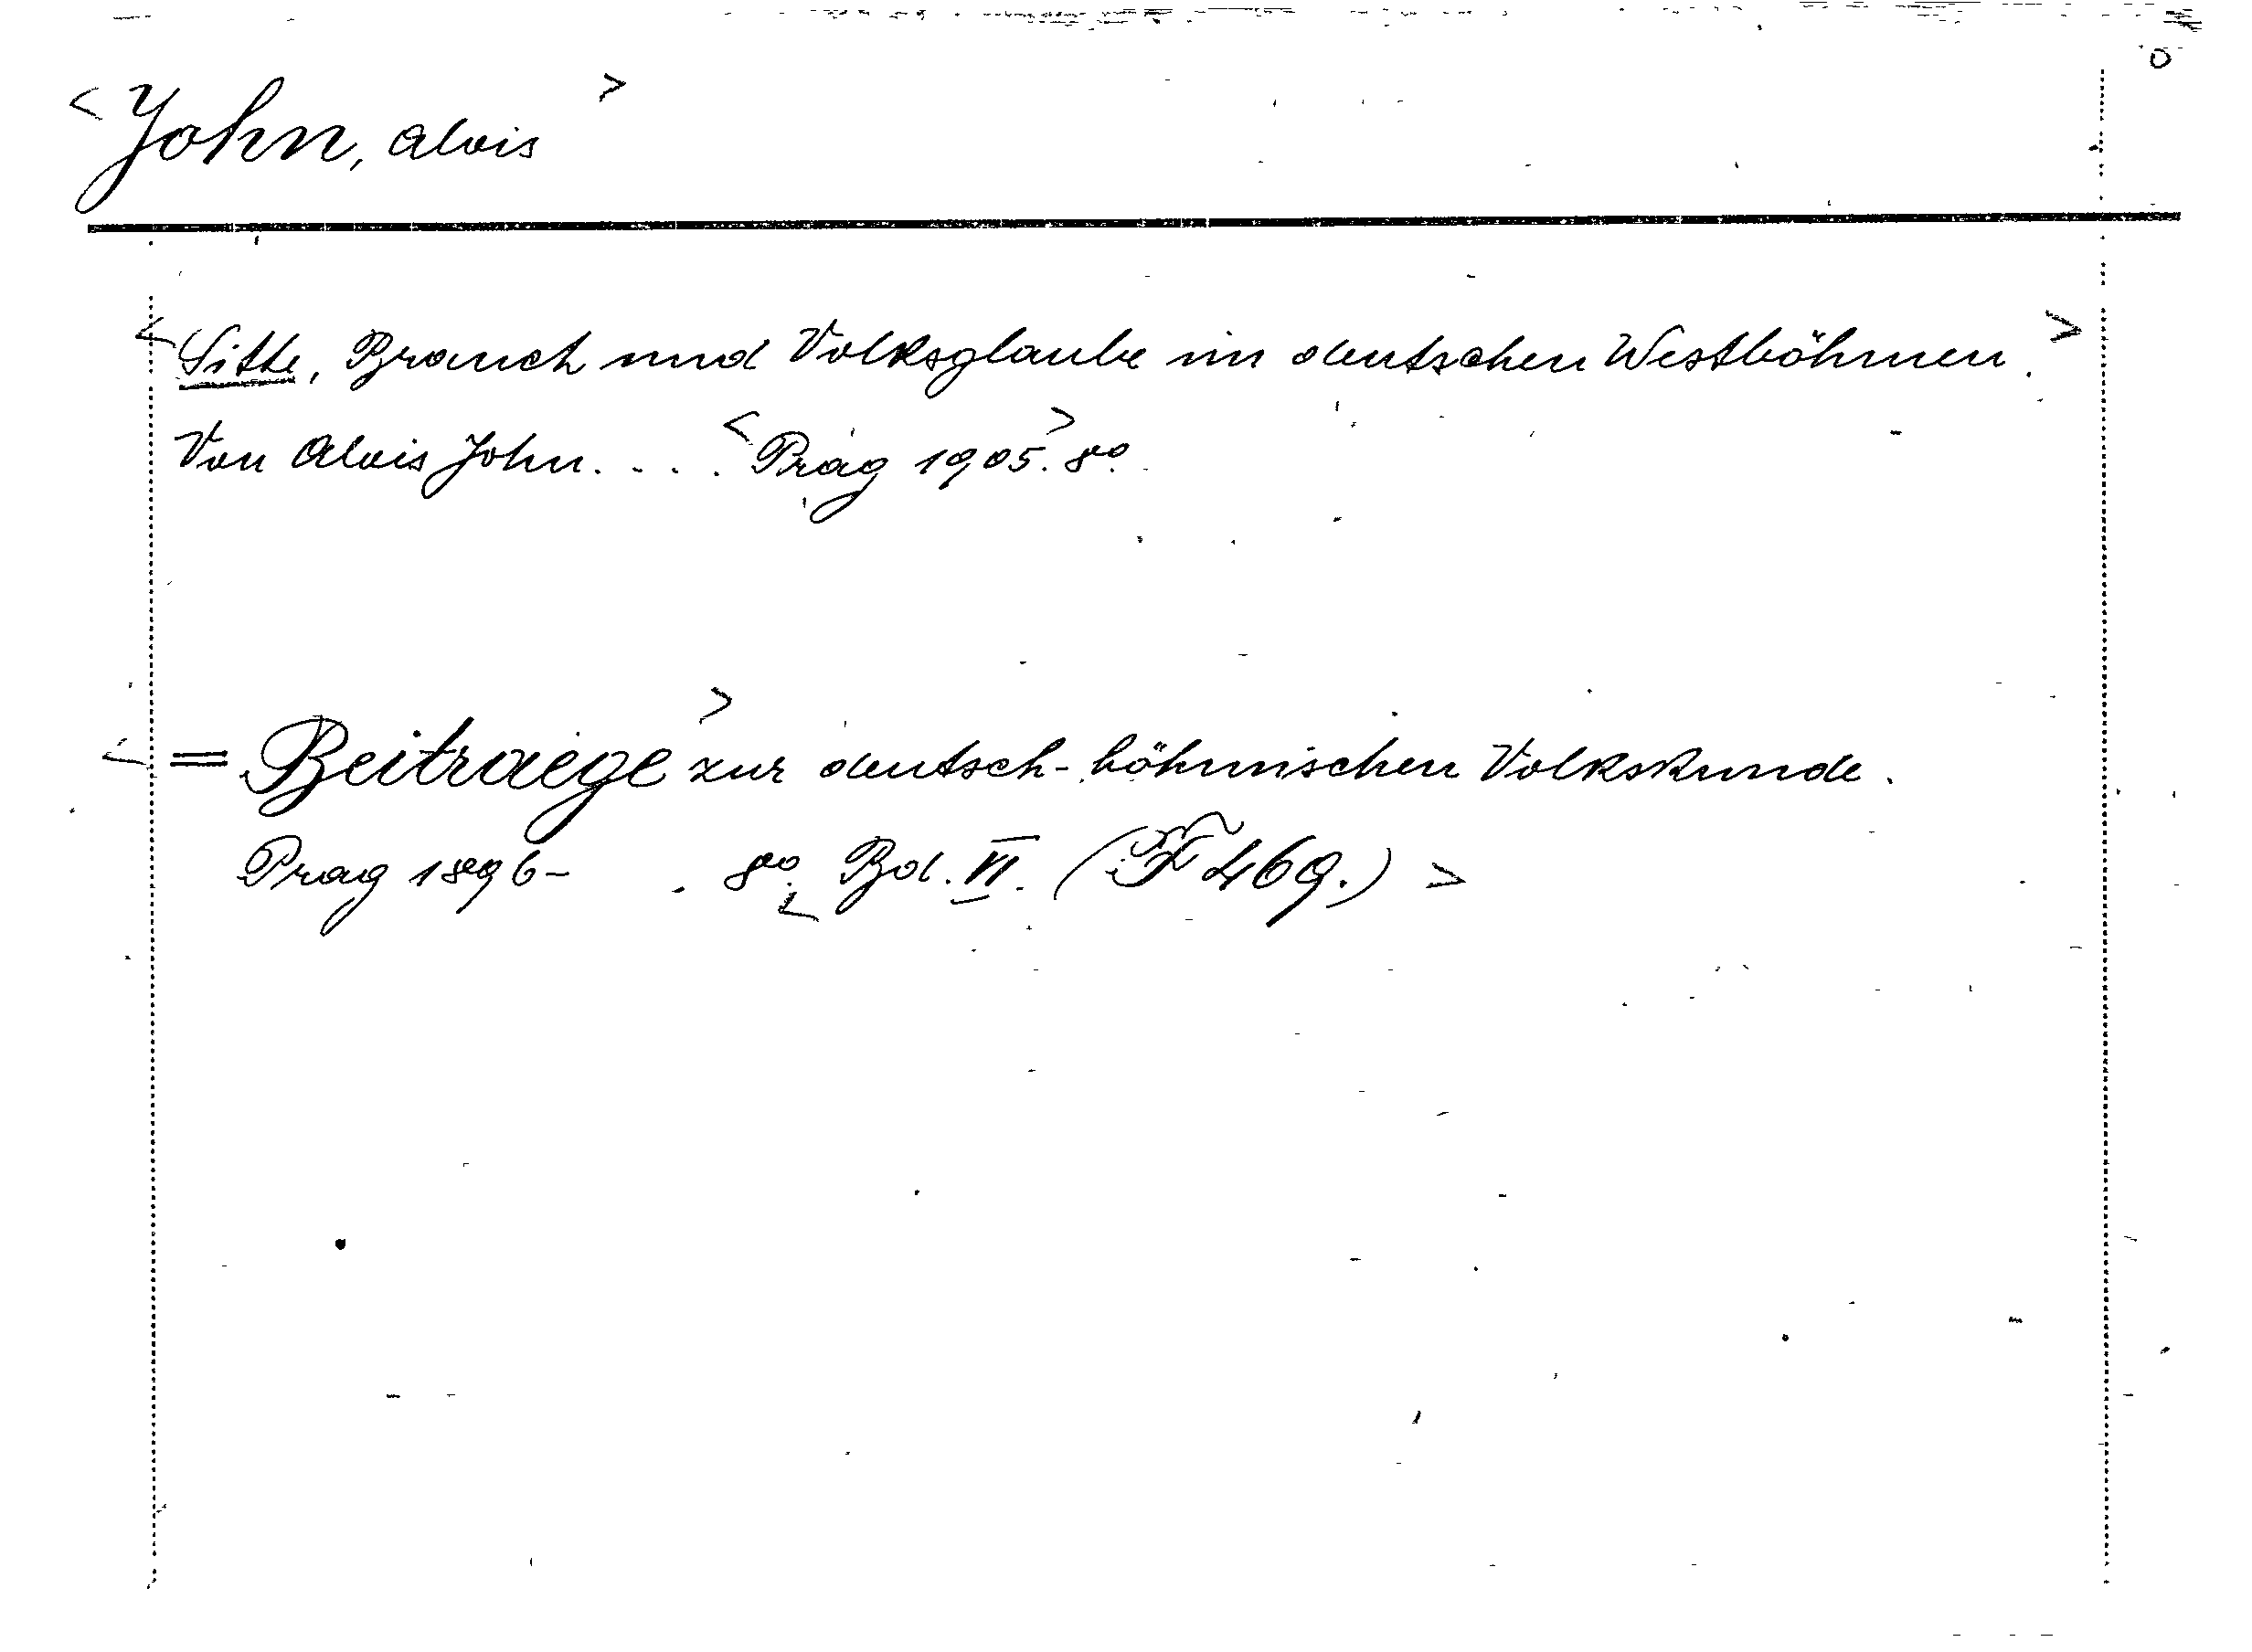 <John, Alois>
<Sitte, Brauch und Volksglaube im deutschen Westböhmen.>
Von Alois John. . . . <Prag 1905.> 8º.
<= Beitraege> zur deutsch-böhmischen Volkskunde.
Prag 1896- . 8º. <Bd. VI. (F 469.)>